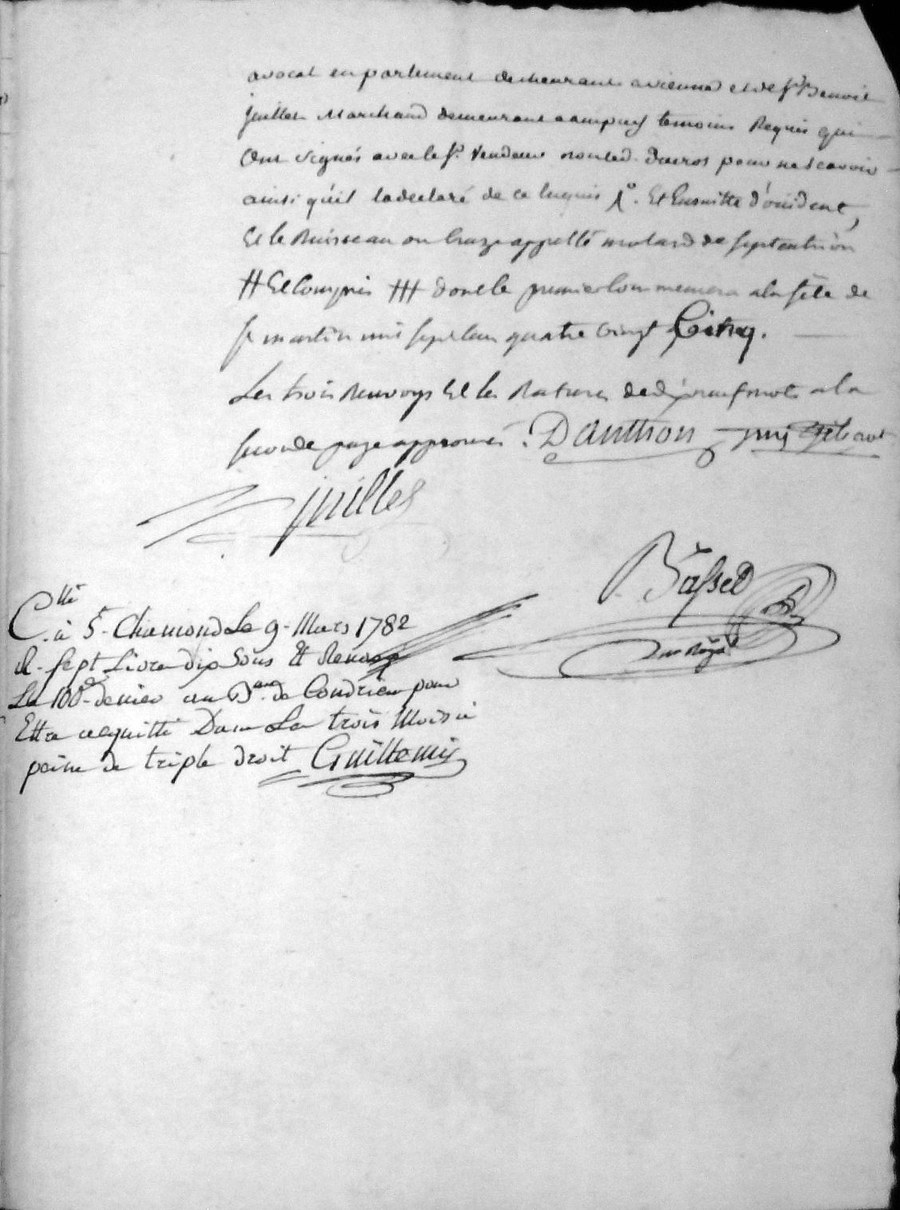 avocat en parlement demeurant a vienne et de Sr. Benoit
juillet Marchand demeurant a ampuy temoins Requis qui
Ont signés avec le Sr. Vendeur non led. Duros pour ne scavoir
ainsi qu'il la declaré de ce Enquis 1º. Et Ensuitte d'occident,
Et le Ruisseau ou Craze appellé molard de septentrion
++ Et Compris +++ dont le premier Commencera a la fête de
St martin mil sept cent quatre vingt Cinq.
Les trois Renvoys Et les Ratures de mots a la
seconde page approuvés. Danthon
juillet
Basset
C.llé à St. Chamond Le 9. Mars 1782
R. sept Livre dix Sous Et Renvoyé
Le 100e. denier au B.eau de Condrieu pour
Etre acquitté Dans Les trois Mois à
peine de triple droit Guillemin
not. Royal